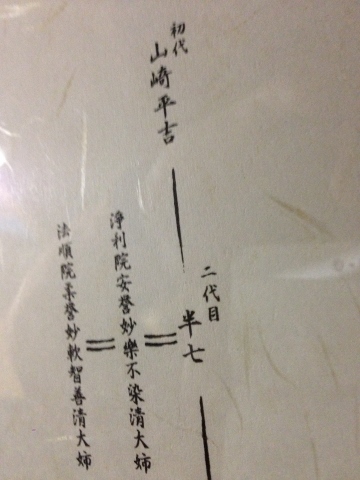 初代
山崎平吉
二代目
半七
浄利院安誉妙樂不染清大姉
法順院柔誉妙軟智善清大姉